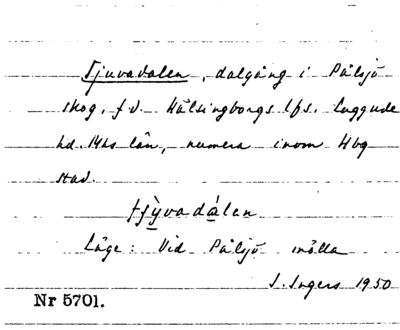 Tjuvadalen, dalgång i Pålsjö
skog, f.d. Hälsingborgs lfs. Luggude
hd. Mhs län, numera inom Hbg
stad.
Läge: Vid Pålsjö mölla
I. Ingers 1950
Nr 5701.